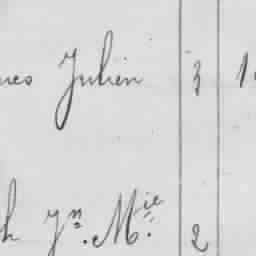 Julien 3 1
h Jn. Mie. 2